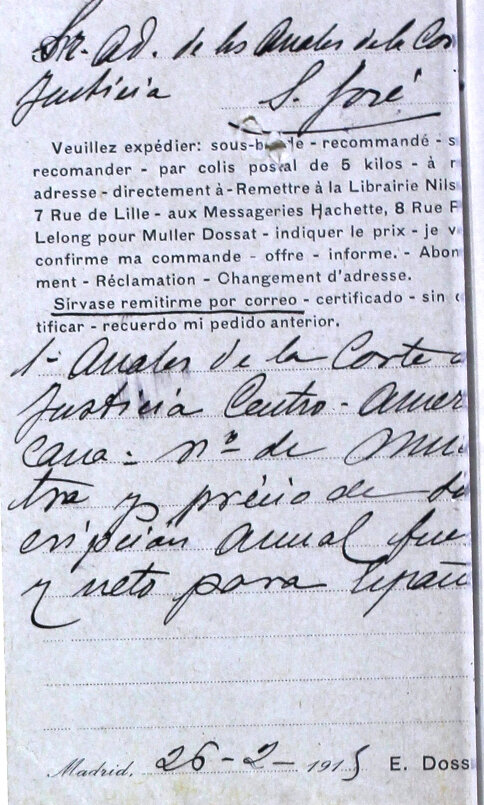 Sr. Ad. de los Anales de la Cor
Justicia S. José
Veuillez expédier: sous-b le - recommandé - s
recomander - par colis postal de 5 kilos - à r
adresse - directement à - Remettre à la Librairie Nils
7 Rue de Lille - aux Messageries Hachette, 8 Rue P
Lelong pour Muller Dossat - indiquer le prix - je v
confirme ma commande - offre - informe. - Abon
ment - Réclamation - Changement d'adresse.
Sírvase remitirme por correo - certificado - sin c
tificar - recuerdo mi pedido anterior.
1 - Anales de la Corte d
Justicia Centro-Amer
cana: nº de mue
tra y précio de su
cripción anual fue
y neto para Españ
Madrid, 26-2-1915 E. Doss